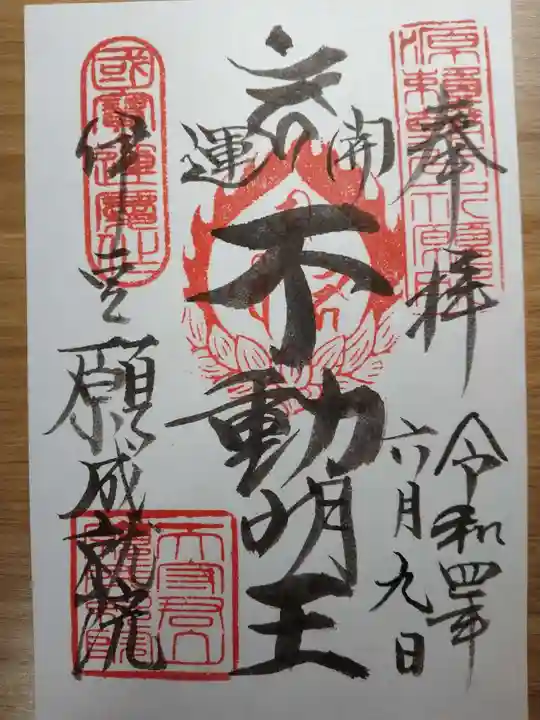 奉拝
令和四年
六月九日
開運
不動明王
伊豆
願成就院
國寶運慶作